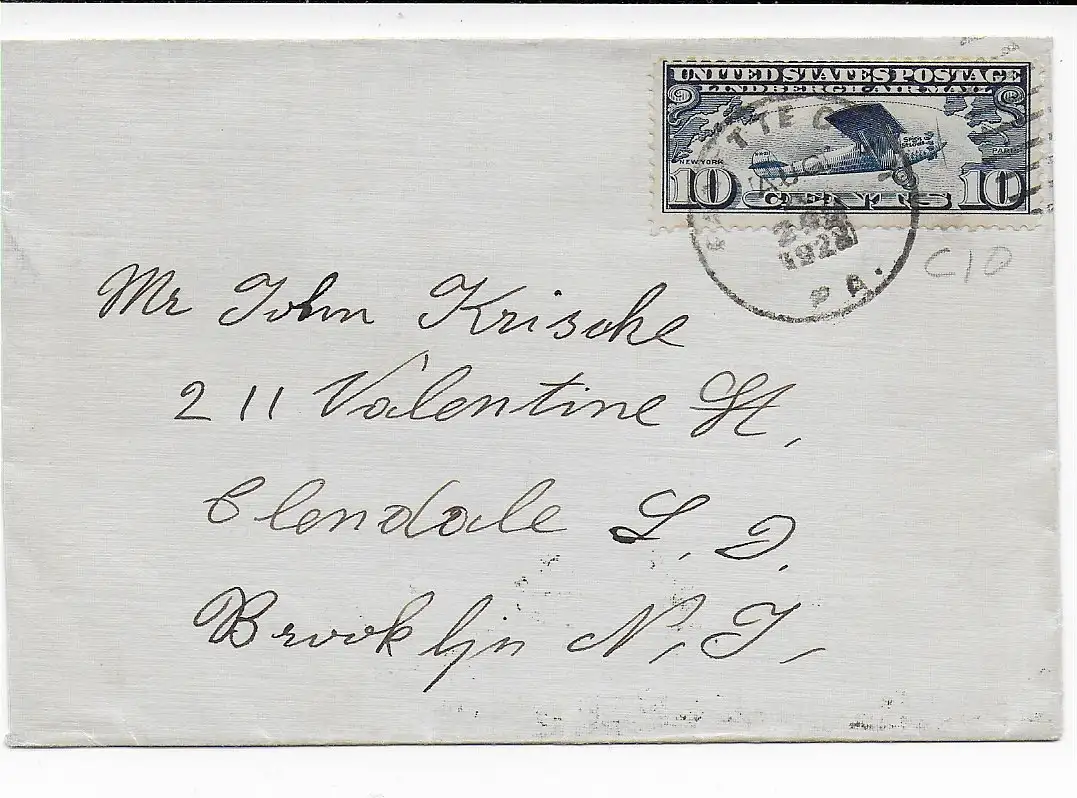 UNITED STATES POSTAGE
LINDBERGH AIR MAIL
NEW YORK
PARIS
10 CENTS 10
AUG
1928
PA.
C10
Mr John Krische
211 Valentine St,
Glendale L. I.
Brooklyn N. Y.